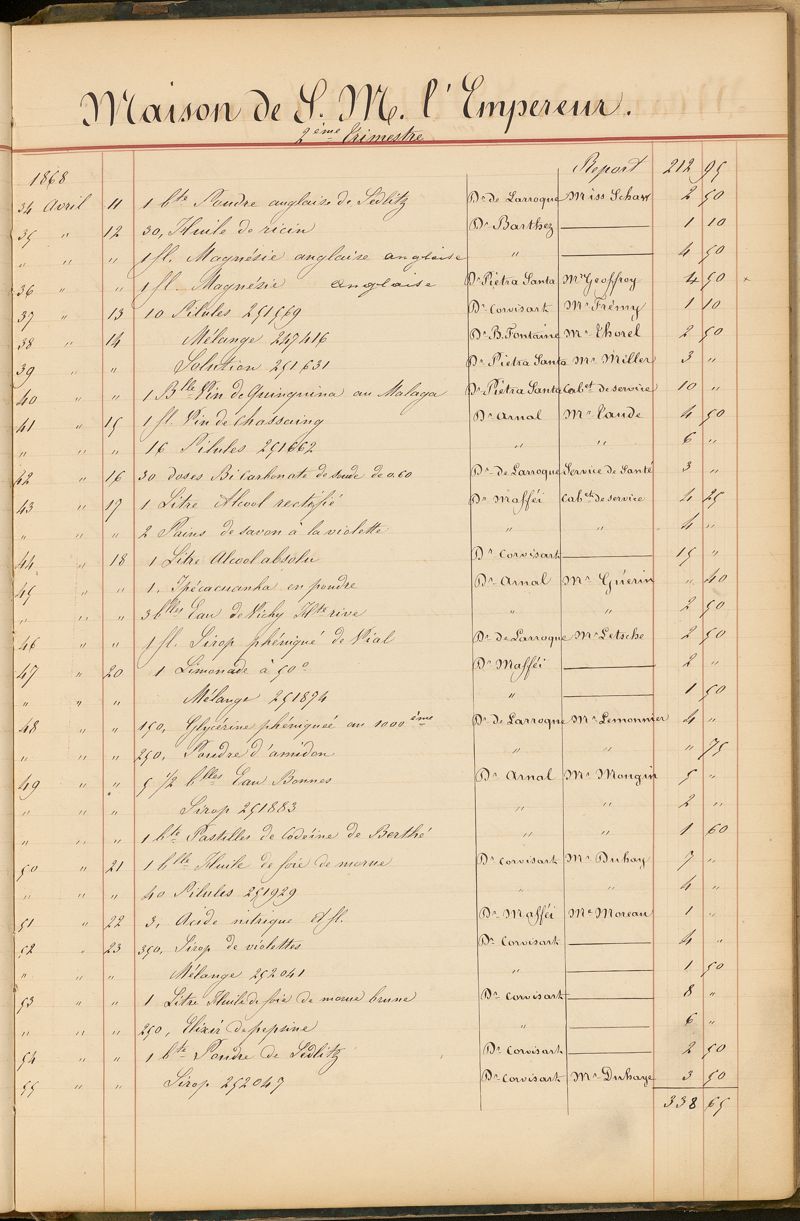 Maison de S. M. l'Empereur.
2ème Trimestre
1868 Report 212 95
34 Avril 11 1 bte Poudre anglaise de Sedlitz Dr de Larroque Miss Schaw 2 50
35 " 12 30, Huile de ricin Dr Barthez — 1 10
" " " 1 fl. Magnésie anglaise anglaise " — 4 50
36 " " 1 fl. Magnésie anglaise Dr Pietra Santa Mr Geoffroy 4 50 x
37 " 13 10 Pilules 251569 Dr Corvisart Mr Frémy 1 10
38 " 14 Mélange 247416 Dr B. Fontaine Mr Thorel 2 50
39 " " Solution 251631 Dr Pietra Santa Mr Miller 3 "
40 " " 1 Blle Vin de Quinquina au Malaga Dr Pietra Santa Cabt de service 10 "
41 " 15 1 fl. Vin de Chassaing Dr Arnal Mr Caude 4 50
" " " 16 Pilules 251662 " " 6 "
42 " 16 30 doses Bicarbonate de soude de 0.60 Dr de Larroque Service de Santé 3 "
43 " 17 1 Litre Alcool rectifié Dr Mafféi Cabt de service 4 25
" " " 2 Pains de savon à la violette " " 4 "
44 " 18 1 Litre Alcool absolu Dr Corvisart — 15 "
45 " " 1, Ipécacuanha en poudre Dr Arnal Mr Guérin " 40
" " " 3 blles Eau de Vichy Hte rive " " 2 50
46 " " 1 fl. Sirop phéniqué de Vial Dr de Larroque Mr Letsche 2 50
47 " 20 1 Limonade à 50° Dr Mafféi — 2 "
" " " Mélange 251894 " — 1 50
48 " " 150, Glycérine phéniquée au 1000ème Dr de Larroque Mr Lemonnier 4 "
" " " 250, Poudre d'amidon " " " 75
49 " " 5 1/2 blles Eau Bonnes Dr Arnal Mr Mongin 5 "
" " " Sirop 251883 " " 2 "
" " " 1 bte Pastilles de Codéine de Berthé " " 1 60
50 " 21 1 blle Huile de foie de morue Dr Corvisart Mr Duhay 7 "
" " " 40 Pilules 251929 " " 4 "
51 " 22 3, Acide nitrique et fl. Dr Mafféi Me Moreau 1 "
52 " 23 350, Sirop de violettes Dr Corvisart — 4 "
" " " Mélange 252041 " — 1 50
53 " " 1 Litre Huile de foie de morue brune Dr Corvisart — 8 "
" " " 250, Elixir de pepsine " — 6 "
54 " " 1 bte Poudre de Sedlitz Dr Corvisart — 2 50
55 " " Sirop 252047 Dr Corvisart Mr Duhaye 3 50
338 65